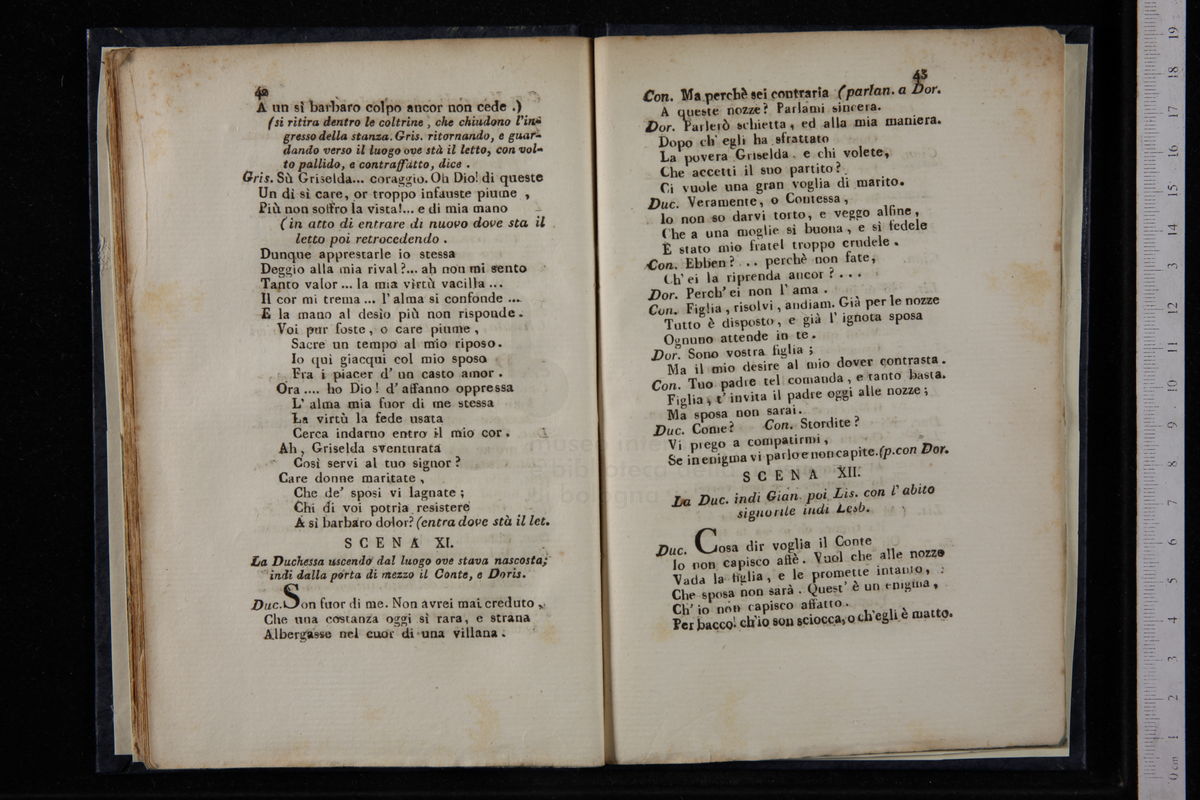 42
A un sì barbaro colpo ancor non cede .)
(si ritira dentro le coltrine , che chiudono l'in-
gresso della stanza. Gris. ritornando, e guar-
dando verso il luogo ove stà il letto, con vol-
to pallido, e contraffatto, dice .
Gris. Sù Griselda... coraggio. Oh Dio! di queste
Un dì sì care, or troppo infauste piume ,
Più non soffro la vista!... e di mia mano
(in atto di entrare di nuovo dove sta il
letto poi retrocedendo .
Dunque apprestarle io stessa
Deggio alla mia rival ?... ah non mi sento
Tanto valor ... la mia virtù vacilla ...
Il cor mi trema ... l' alma si confonde ...
E la mano al desìo più non risponde .
Voi pur foste , o care piume ,
Sacre un tempo al mio riposo .
Io qui giacqui col mio sposo
Fra i piacer d' un casto amor .
Ora .... ho Dio ! d' affanno oppressa
L' alma mia fuor di me stessa
La virtù la fede usata
Cerca indarno entro il mio cor .
Ah , Griselda sventurata
Così servi al tuo signor ?
Care donne maritate ,
Che de' sposi vi lagnate ;
Chi di voi potria resistere
A sì barbaro dolor? (entra dove stà il let.
SCENA XI.
La Duchessa uscendo dal luogo ove stava nascosta;
indi dalla porta di mezzo il Conte, e Doris.
Duc. Son fuor di me. Non avrei mai creduto ,
Che una costanza oggi sì rara, e strana
Albergasse nel cuor di una villana .
43
Con. Ma perchè sei contraria (parlan. a Dor.
A queste nozze? Parlami sincera.
Dor. Parlerò schietta , ed alla mia maniera.
Dopo ch' egli ha sfrattato
La povera Griselda . e chi volete,
Che accetti il suo partito ?
Ci vuole una gran voglia di marito.
Duc. Veramente, o Contessa ,
Io non so darvi torto, e veggo alfine ,
Che a una moglie sì buona , e sì fedele
È stato mio fratel troppo crudele .
Con. Ebben ? . . perchè non fate,
Ch' ei la riprenda ancor ? . . .
Dor. Perch' ei non l' ama .
Con. Figlia , risolvi , andiam. Già per le nozze
Tutto è disposto, e già l' ignota sposa
Ognuno attende in te .
Dor. Sono vostra figlia ;
Ma il mio desire al mio dover contrasta .
Con. Tuo padre tel comanda , e tanto basta.
Figlia , t' invita il padre oggi alle nozze ;
Ma sposa non sarai.
Duc. Come? Con. Stordite ?
Vi prego a compatirmi ,
Se in enigma vi parlo e non capite. (p. con Dor.
SCENA XII.
La Duc. indi Gian. poi Lis. con l' abito
signorile indi Lesb.
Duc. Cosa dir voglia il Conte
Io non capisco affè . Vuol che alle nozze
Vada la figlia , e le promette intanto ,
Che sposa non sarà . Quest' è un enigma ,
Ch' io non capisco affatto .
Per bacco! ch'io son sciocca, o ch'egli è matto.